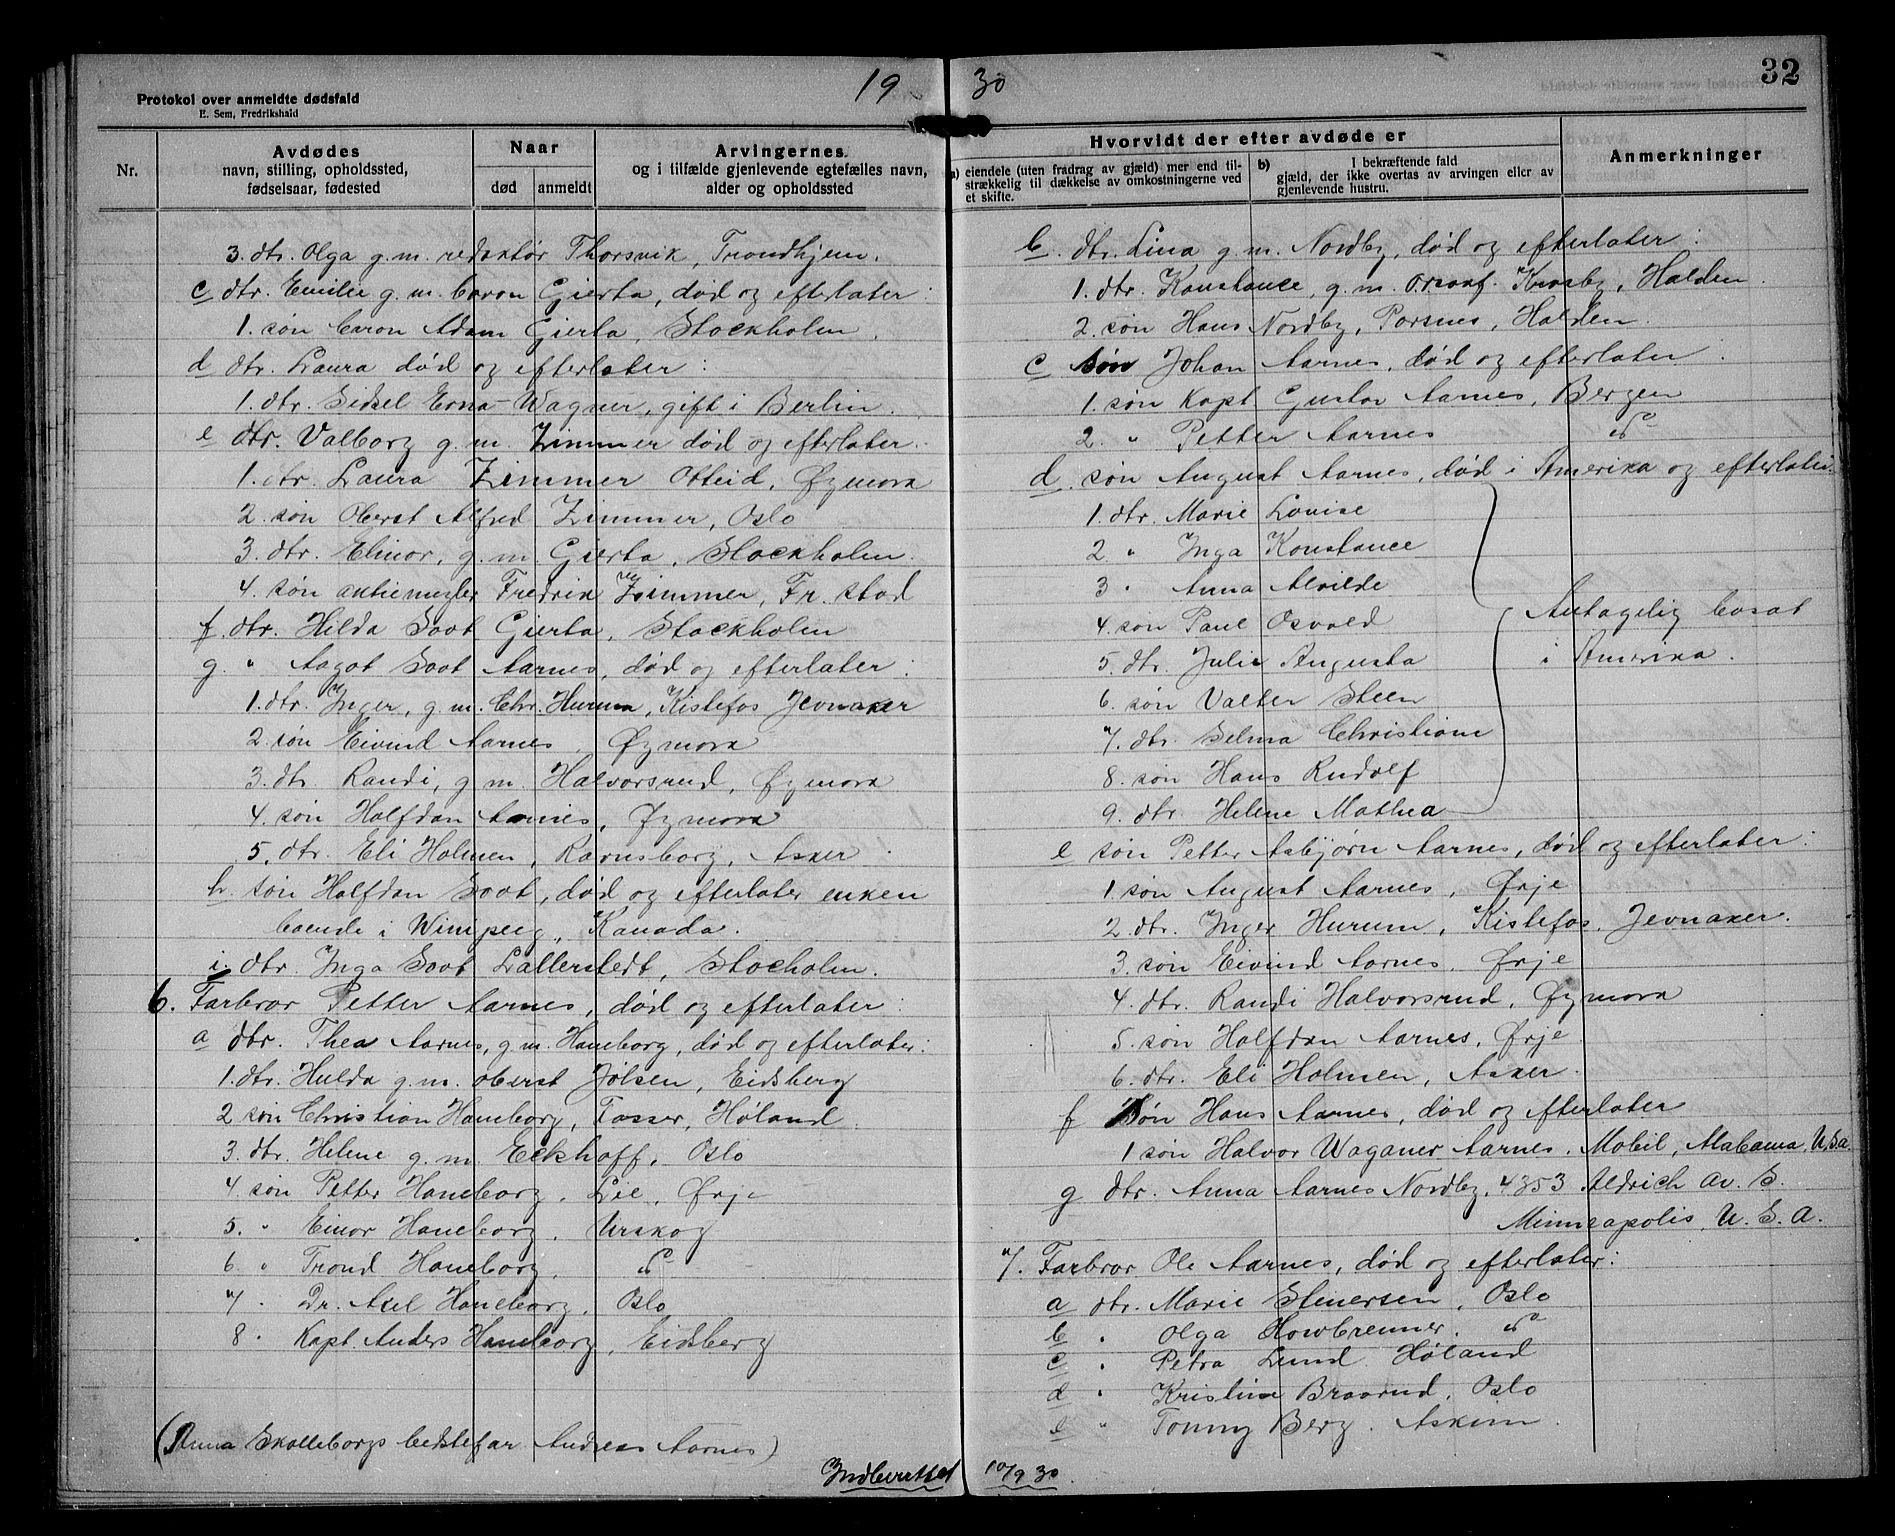 19 30
32
Protokol over anmeldte dødsfald
E. Sem, Fredrikshald
Nr.
Avdødes
navn, stilling, opholdssted,
fødselsaar, fødested
Naar
død
anmeldt
Arvingernes
og i tilfælde gjenlevende egtefælles navn,
alder og opholdssted
Hvorvidt der efter avdøde er
a) eiendele (uten fradrag av gjæld) mer end til-
strækkelig til dækkelse av omkostningerne ved
et skifte.
b) I bekræftende fald
gjæld, der ikke overtas av arvingen eller av
gjenlevende hustru.
Anmerkninger
3. dtr. Olga g.m. redaktør Thorsvik, Trondhjem.
c dtr. Emilie g.m. baron Gierta, død og efterlater:
1. søn baron Adam Gierta, Stockholm.
d dtr. Laura død og efterlater:
1. dtr. Sidsel Erna Wagner, gift i Berlin.
e dtr. Valborg g.m. Zimmer død og efterlater:
1. dtr. Laura Zimmer Otteid, Øymark
2. søn Oberst Alfred Zimmer, Oslo
3. dtr. Elinor, g.m. Gierta, Stockholm.
4. søn aktiemegler Fredrik Zimmer, Fr.stad
f. dtr. Hilda Soot Gierta, Stockholm
g. " Aagot Soot Aarnes, død og efterlater:
1. dtr. Inger, g.m. Chr. Hurum, Kistefos Jevnaker
2. søn Eivind Aarnes, Øymark
3. dtr. Randi, g.m. Halvorsrud, Øymark
4. søn Halfdan Aarnes, Øymark
5. dtr. Eli Holmen, Ravnsborg, Asker.
h. søn Halfdan Soot, død og efterlater enken
boende i Winipeeg, Kanada.
i. dtr. Inga Soot Lallerstedt, Stocholm.
6. Farbror Petter Aarnes, død og efterlater:
a dtr. Thea Aarnes, g.m. Haneborg, død og efterlater:
1. dtr. Hulda g.m. oberst Jølsen, Eidsberg
2 søn Christian Haneborg, Fosser, Høland.
3. dtr. Helene g.m. Eckhoff, Oslo
4. søn Petter Haneborg, Lie, Ørje
5. " Einar Haneborg, Urskog
6. " Trond Haneborg, do
7. " Dr. Axel Haneborg, Oslo
8 " Kapt. Anders Haneborg, Eidsberg
(Anna Skolleborgs bedstefar Andreas Aarnes)
Indberettet 10/9 30.
b. dtr. Lina g.m. Nordby, død og efterlater:
1. dtr. Konstance, g.m. o.rsakf. Krosby, Halden.
2. søn Hans Nordby, Porsnes, Halden.
c søn Johan Aarnes, død og efterlater:
1. søn Kapt Gustav Aarnes, Bergen
2. " Petter Aarnes do
d. søn August Aarnes, død i Amerika og efterlater:
1. dtr. Marie Lovise
2 " Inga Konstance
3 " Anna Alvilde
4. søn Paul Osvald
5. dtr. Julie Augusta
6. søn Valter Steen
7. dtr. Selma Christiane
8. søn Hans Rudolf
9. dtr. Helene Mathea
Antagelig bosat
i Amerika.
e søn Petter Asbjørn Aarnes, død og efterlater:
1. søn August Aarnes, Ørje
2. dtr. Inger Hurum, Kistefos, Jevnaker.
3. søn Eivind Aarnes, Ørje
4. dtr. Randi Halvorsrud, Øymark
5. søn Halfdan Aarnes, Ørje.
6. dtr. Eli Holmen, Asker.
f søn Hans Aarnes, død og efterlater
1 søn Halvor Waganer Aarnes, Mobil, Alabama, U.S.a.
g dtr. Anna Aarnes Nordby, 4353 Aldrich av. S.
Minneapolis, U.S.A.
7. Farbror Ole Aarnes, død og efterlater:
a dtr. Marie Stenersen, Oslo
b " Olga Howbrenner, do
c " Petra Lund Høland
d " Kristine Braarud, Oslo
e " Tonny Berg. Askim.